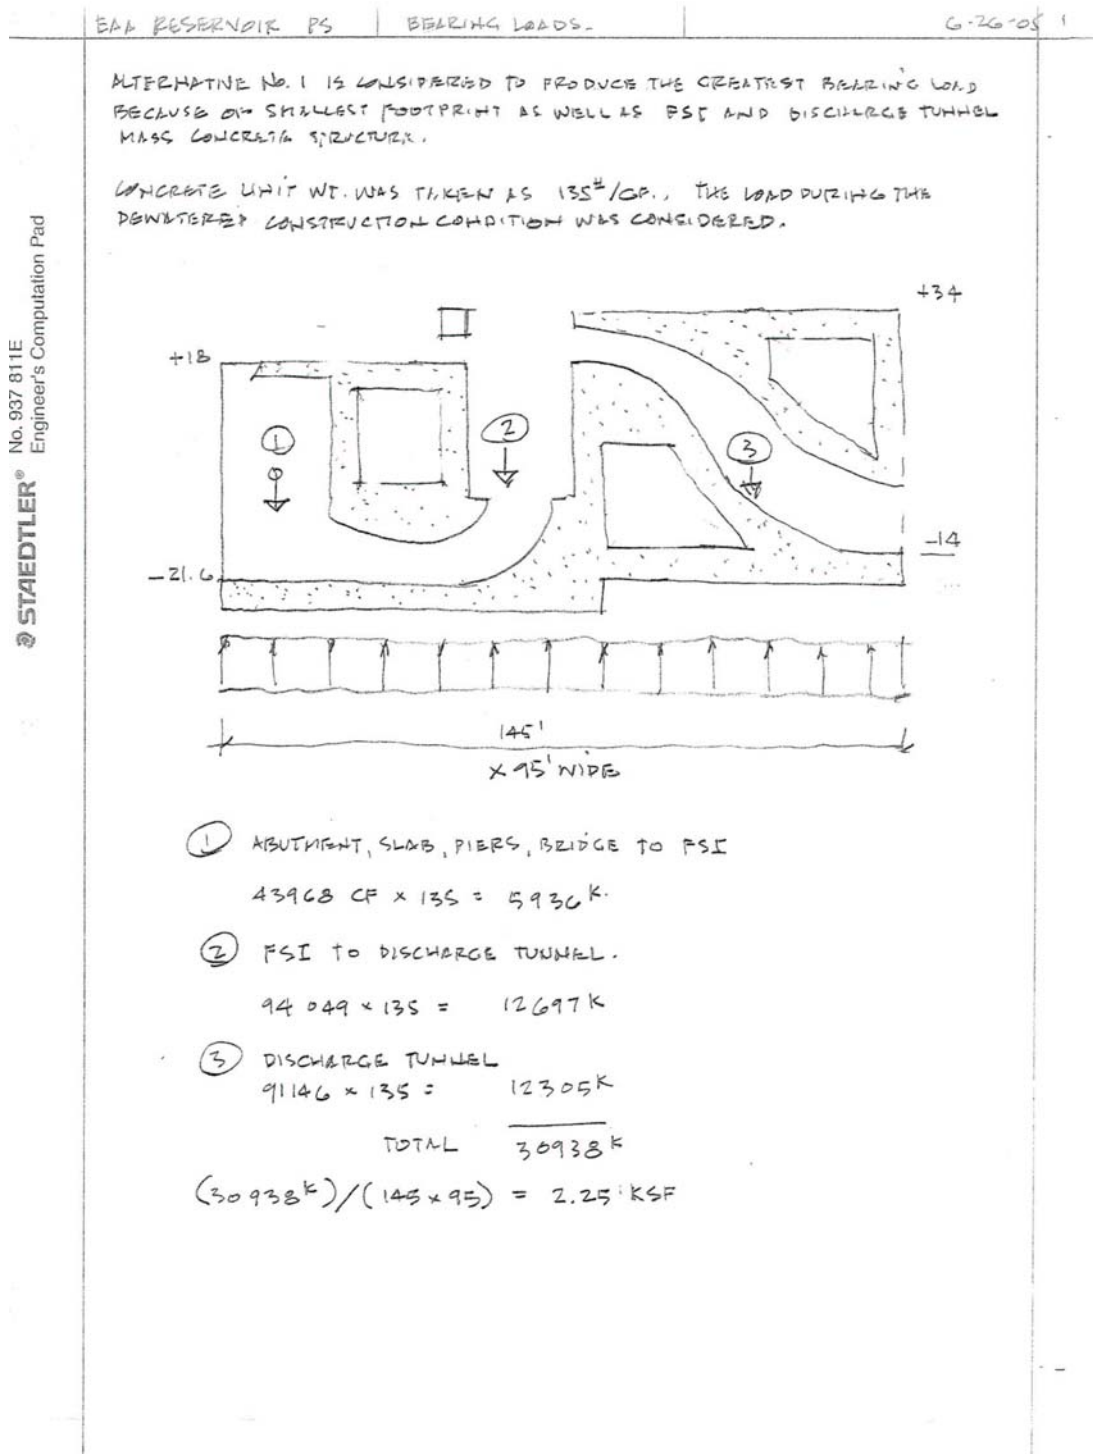 EAA RESERVOIR PS BEARING LOADS. 6-26-05 1
ALTERNATIVE No. 1 IS CONSIDERED TO PRODUCE THE GREATEST BEARING LOAD
BECAUSE OF SMALLEST FOOTPRINT AS WELL AS FSI AND DISCHARGE TUNNEL
MASS CONCRETE STRUCTURE.
CONCRETE UNIT WT. WAS TAKEN AS 135#/CF., THE LOAD DURING THE
DEWATERED CONSTRUCTION CONDITION WAS CONSIDERED.
STAEDTLER® No. 937 811E
Engineer's Computation Pad
+34
+18
1
2
3
-14
-21.6
145'
x 95' WIDE
1 ABUTMENT, SLAB, PIERS, BRIDGE TO FSI
43968 CF x 135 = 5936 K.
2 FSI TO DISCHARGE TUNNEL.
94 049 x 135 = 12697 K
3 DISCHARGE TUNNEL
91146 x 135 = 12305 K
TOTAL 30938 K
(30938 K)/(145 x 95) = 2.25 KSF